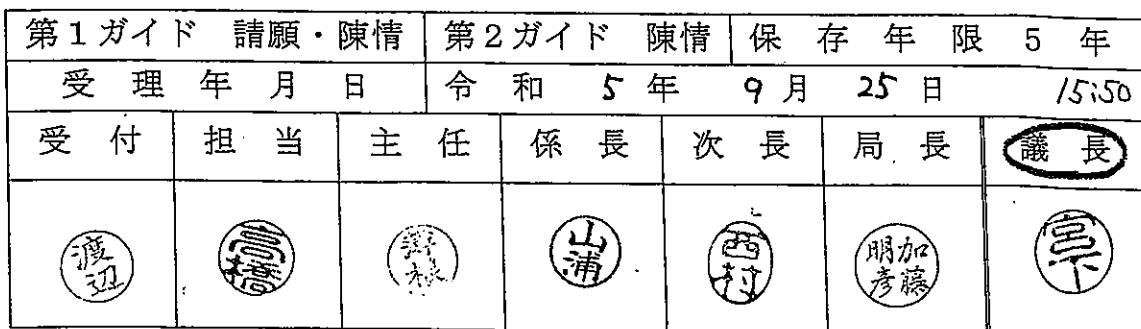 第1ガイド 請願・陳情 第2ガイド 陳情 保存年限 5年
受理年月日 令和 5年 9月 25日 15:50
受付 担当 主任 係長 次長 局長 議長
渡辺 高橋 野根 山浦 西村 加藤明彦 宮下